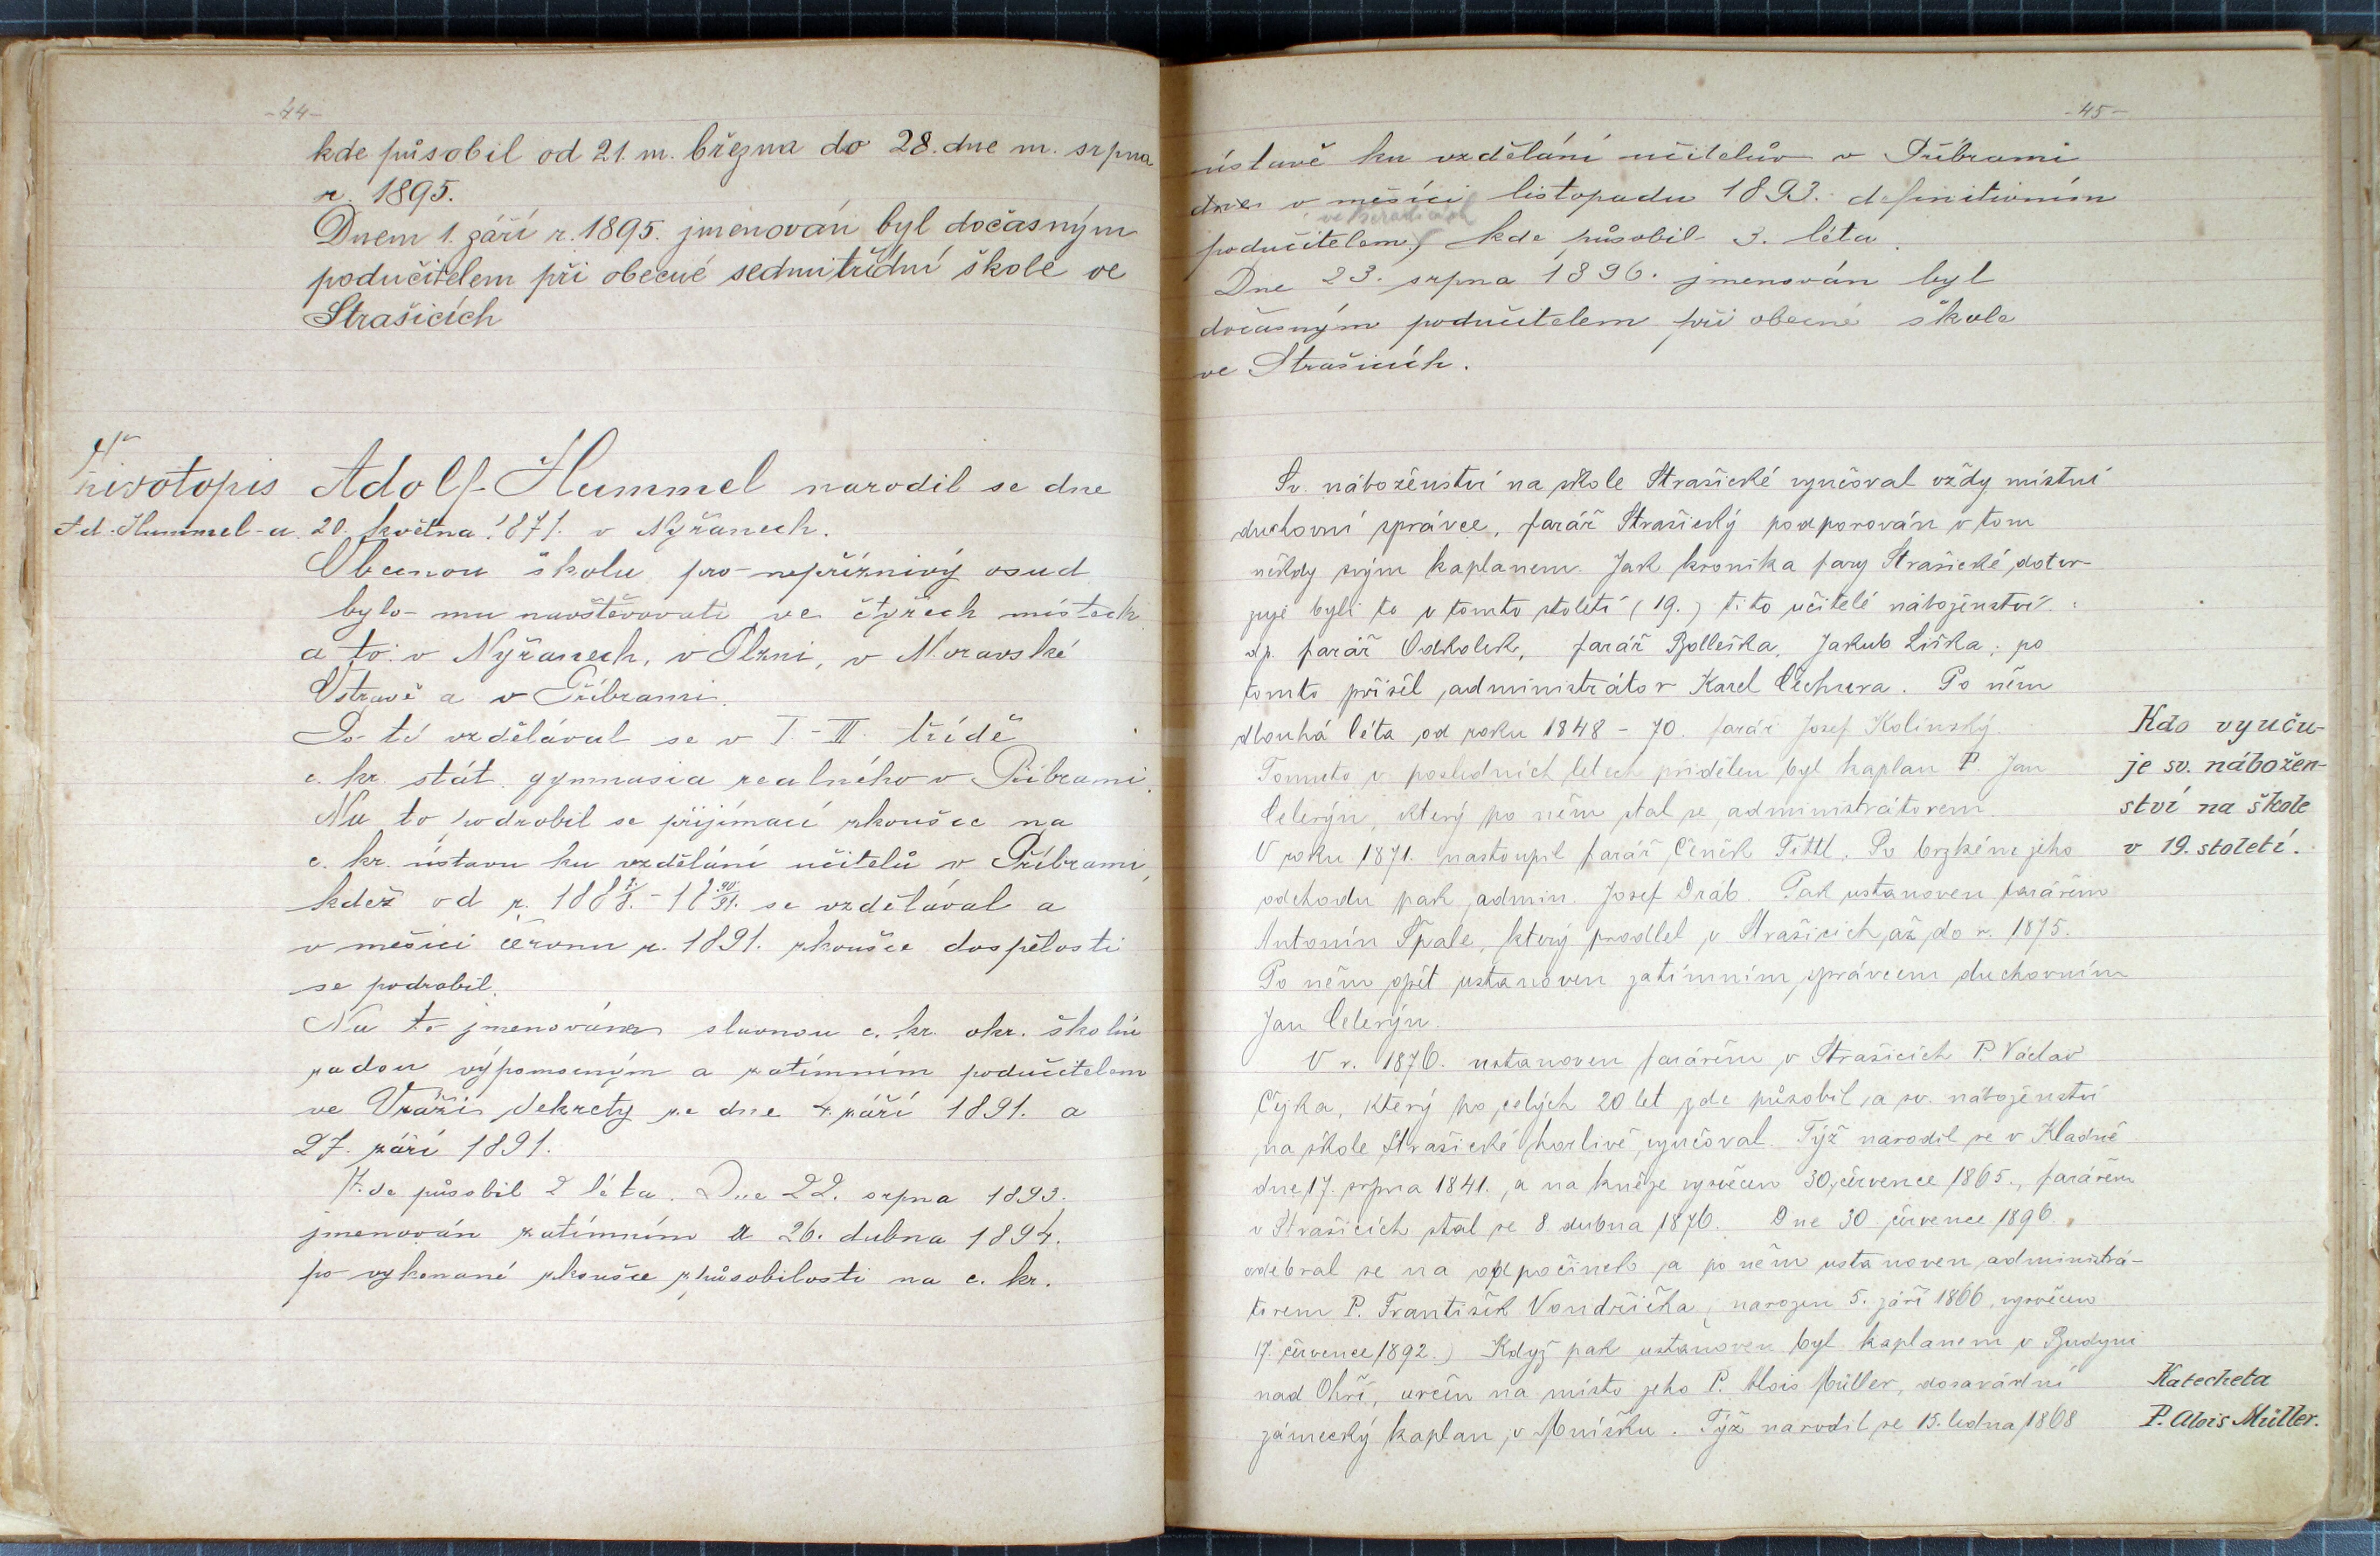 -44-
kde působil od 21. m. března do 28. dne m. srpna
r. 1895.
Dnem 1. září r. 1895. jmenován byl dočasným
podučitelem při obecné sedmitřídní škole ve
Strašicích
Životopis
Ad. Hummel-a.
Adolf Hummel narodil se dne
20. května 1871. v Nýřanech.
Obecnou školu pro nepříznivý osud
bylo mu navštěvovati ve čtyřech místech
a to: v Nýřanech, v Plzni, v Moravské
Ostravě a v Příbrami.
Po té vzdělával se v I.-III. třídě
c. kr. stát. gymnasia realného v Příbrami.
Na to podrobil se přijímací zkoušce na
c. kr. ústavu ku vzdělání učitelů v Příbrami,
kdež od r. 188 7/8. - 18 90/91. se vzdělával a
v měsíci červnu r. 1891. zkoušce dospělosti
se podrobil.
Na to jmenován slavnou c. kr. okr. školní
radou výpomocným a zatímním podučitelem
ve Vráži dekrety ze dne 4. září 1891. a
27. září 1891.
Zde působil 2 léta. Dne 22. srpna 1893.
jmenován zatímním a 26. dubna 1894.
po vykonané zkoušce způsobilosti na c. kr.
-45-
ústavě ku vzdělání učitelův v Příbrami
dne v měsíci listopadu 1893. definitivním
podučitelem, kde působil 3. léta.
Dne 23. srpna 1896. jmenován byl
dočasným podučitelem při obecné škole
ve Strašicích.
Sv. náboženství na škole Strašické vyučoval vždy místní
duchovní správce, farář Strašický podporován v tom
někdy svým kaplanem. Jak kronika fary Strašické dotvr-
zuje byli to v tomto století (19.) tito učitelé náboženství:
dp. farář Odkolek, farář Bolleška, Jakub Liška; po
tomto přišel administrátor Karel Čechura. Po něm
dlouhá léta od roku 1848 - 70. farář Josef Kolínský.
Tomuto v posledních letech přidělen byl kaplan P. Jan
Celerýn, který po něm stal se administrátorem.
V roku 1871. nastoupil farář Čeněk Tittl. Po brzkém jeho
odchodu pak admin. Josef Dráb. Pak ustanoven farářem
Antonín Špale, který prodlel v Strašicích až do r. 1875.
Po něm opět ustanoven zatímním správcem duchovním
Jan Celerýn.
V r. 1876. ustanoven farářem v Strašicích P. Václav
Čejka, který po celých 20 let zde působil a sv. náboženství
na škole Strašické horlivě vyučoval. Týž narodil se v Kladně
dne 17. srpna 1841. a na kněze vysvěcen 30. července 1865., farářem
v Strašicích stal se 8. dubna 1876. Dne 30. července 1896.
odebral se na odpočinek a po něm ustanoven administrá-
torem P. František Vondřička, narozen 5. září 1866, vysvěcen
17. července 1892.) Když pak ustanoven byl kaplanem v Budyni
nad Ohří, určen na místo jeho P. Alois Müller, dosavádní
zámecký kaplan v Mníšku. Týž narodil se 15. ledna 1868
Kdo vyuču-
je sv. nábožen-
ství na škole
v 19. století.
Katecheta
P. Alois Müller.